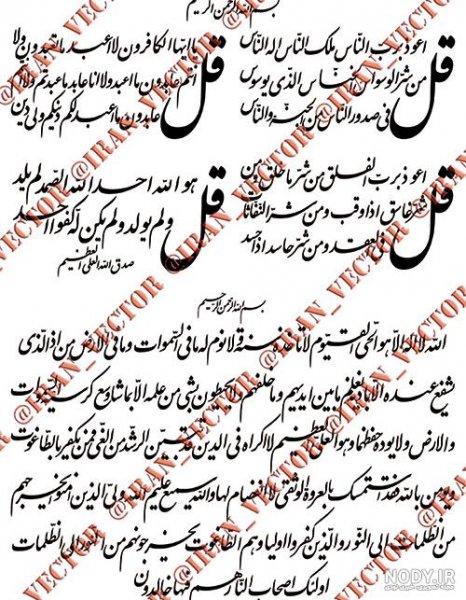 بسم الله الرحمن الرحیم
قل اعوذ برب الناس ملک الناس اله الناس
من شر الوسواس الخناس الذی یوسوس
فی صدور الناس من الجنة والناس
قل یا ایها الکافرون لا اعبد ما تعبدون ولا
انتم عابدون ما اعبد ولا انا عابد ما عبدتم ولا انتم
عابدون ما اعبد لکم دینکم ولی دین
قل اعوذ برب الفلق من شر ما خلق ومن
شر غاسق اذا وقب ومن شر النفاثات
فی العقد ومن شر حاسد اذا حسد
قل هو الله احد الله الصمد لم یلد
ولم یولد ولم یکن له کفوا احد
صدق الله العلی العظیم
بسم الله الرحمن الرحیم
الله لا اله الا هو الحی القیوم لا تاخذه سنة ولا نوم له ما فی السموات وما فی الارض من ذا الذی
یشفع عنده الا باذنه یعلم ما بین ایدیهم وما خلفهم ولا یحیطون بشیء من علمه الا بما شاء وسع کرسیه السموات
والارض ولا یوده حفظهما وهو العلی العظیم لا اکراه فی الدین قد تبین الرشد من الغی فمن یکفر بالطاغوت
ویومن بالله فقد استمسک بالعروة الوثقی لا انفصام لها والله سمیع علیم الله ولی الذین آمنوا یخرجهم
من الظلمات الی النور والذین کفروا اولیاوهم الطاغوت یخرجونهم من النور الی الظلمات
اولئک اصحاب النار هم فیها خالدون
@IRAN_VECTOR
NODY.IR